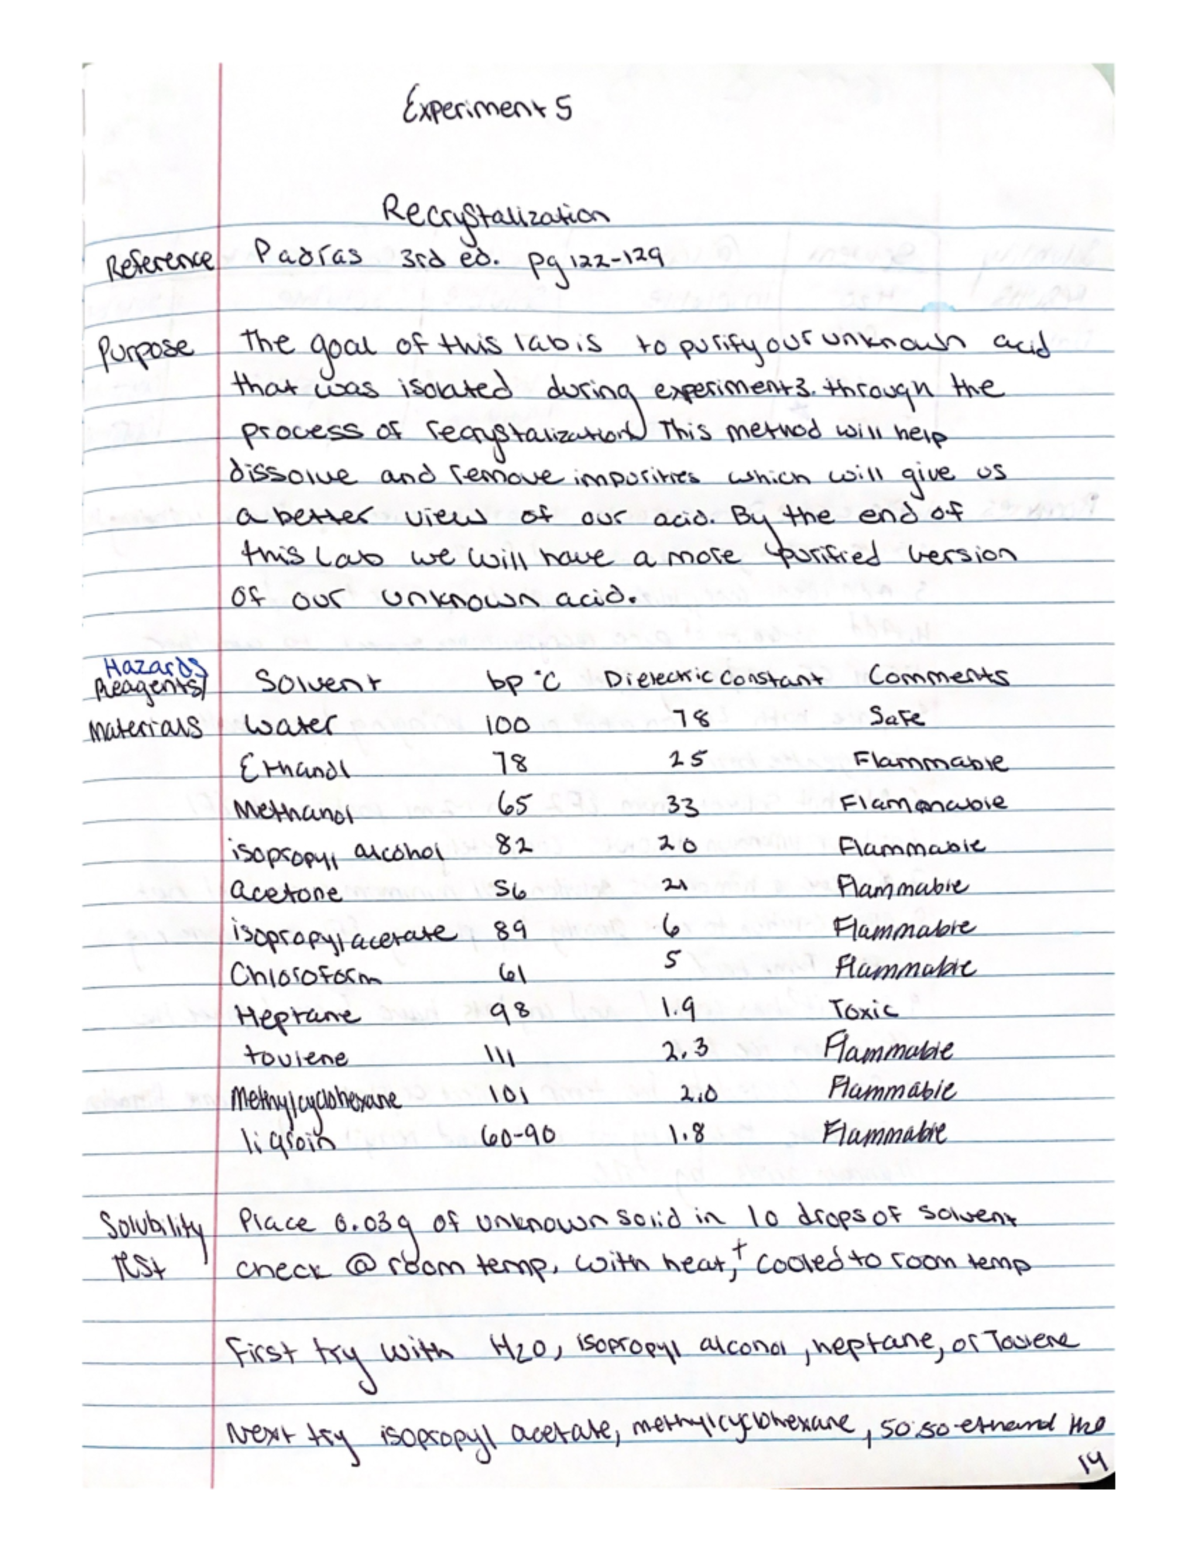 Experiment 5
Recrystalization
Reference Padías 3rd ed. pg 122-129
Purpose The goal of this lab is to purify our unknown acid
that was isolated during experiment 3. through the
process of recrystalization. This method will help
dissolve and remove impurities which will give us
a better view of our acid. By the end of
this lab we will have a more purified version
of our unknown acid.
Hazards
Reagents/ Solvent bp °C Dielectric Constant Comments
Materials Water 100 78 Safe
Ethanol 78 25 Flammable
Methanol 65 33 Flammable
isopropyl alcohol 82 20 Flammable
acetone 56 21 Flammable
isopropyl acetate 89 6 Flammable
Chloroform 61 5 Flammable
Heptane 98 1.9 Toxic
toulene 111 2.3 Flammable
Methylcyclohexane 101 2.0 Flammable
ligroin 60-90 1.8 Flammable
Solubility Place 0.03g of unknown solid in 10 drops of solvent
test check @ room temp, with heat, + cooled to room temp
First try with H2O, isopropyl alcohol, heptane, or Toulene
Next try isopropyl acetate, methylcyclohexane, 50:50 ethanol H2O
14